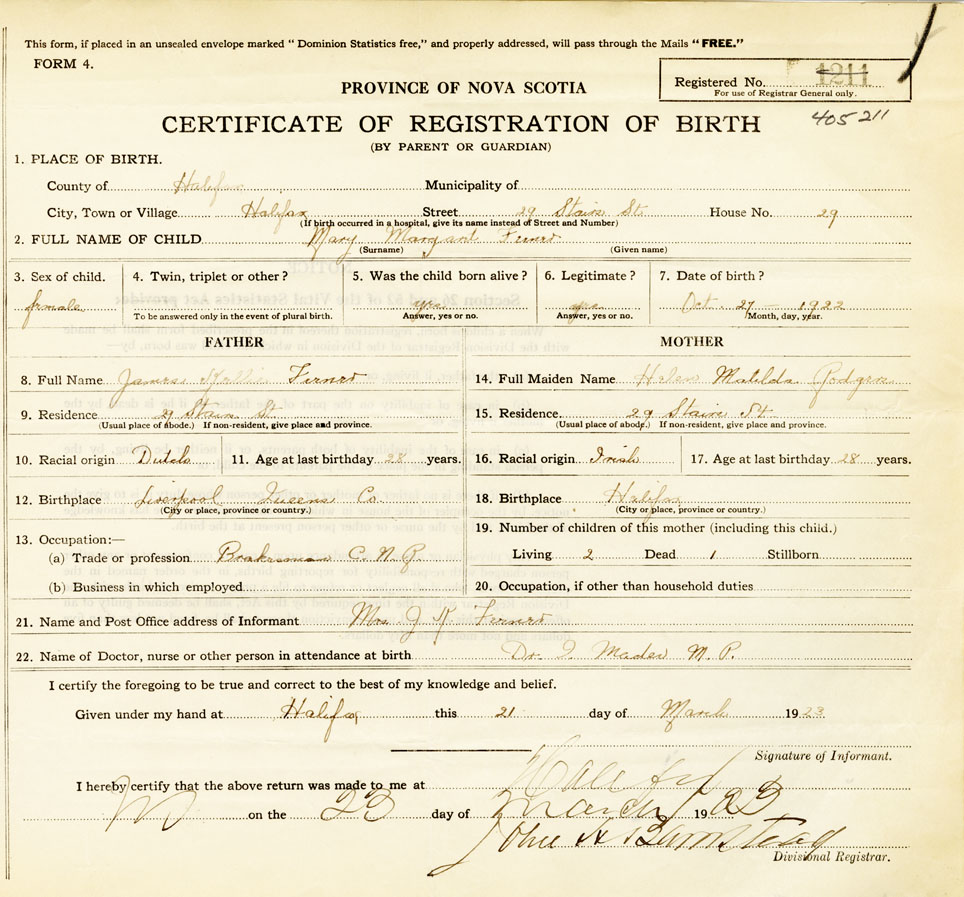 This form, if placed in an unsealed envelope marked "Dominion Statistics free," and properly addressed, will pass through the Mails "FREE."
FORM 4.
Registered No. 1211
For use of Registrar General only.
PROVINCE OF NOVA SCOTIA
405 211
CERTIFICATE OF REGISTRATION OF BIRTH
(BY PARENT OR GUARDIAN)
1. PLACE OF BIRTH.
County of Halifax Municipality of
City, Town or Village Halifax Street 29 Stairs St. House No. 29
(If birth occurred in a hospital, give its name instead of Street and Number)
2. FULL NAME OF CHILD Mary Margaret
(Surname) (Given name)
3. Sex of child. 4. Twin, triplet or other? 5. Was the child born alive? 6. Legitimate? 7. Date of birth?
female yes yes Oct. 27 — 1922
To be answered only in the event of plural birth. Answer, yes or no. Answer, yes or no. Month, day, year.
FATHER MOTHER
8. Full Name James 14. Full Maiden Name Helen Matilda
9. Residence 29 Stairs St. 15. Residence. 29 Stairs St
(Usual place of abode.) If non-resident, give place and province. (Usual place of abode.) If non-resident, give place and province.
10. Racial origin Dutch 11. Age at last birthday 28 years. 16. Racial origin Irish 17. Age at last birthday 28 years.
12. Birthplace Liverpool Queens Co. 18. Birthplace Halifax
(City or place, province or country.) (City or place, province or country.)
13. Occupation:— 19. Number of children of this mother (including this child.)
(a) Trade or profession Brakesman C. N. R Living 2 Dead 1 Stillborn
(b) Business in which employed 20. Occupation, if other than household duties
21. Name and Post Office address of Informant Mrs J K
22. Name of Doctor, nurse or other person in attendance at birth Dr. Mader
I certify the foregoing to be true and correct to the best of my knowledge and belief.
Given under my hand at Halifax this 21 day of March 1923
Signature of Informant.
I hereby certify that the above return was made to me at Halifax
on the 23 day of March 1923
John A Barnstead
Divisional Registrar.